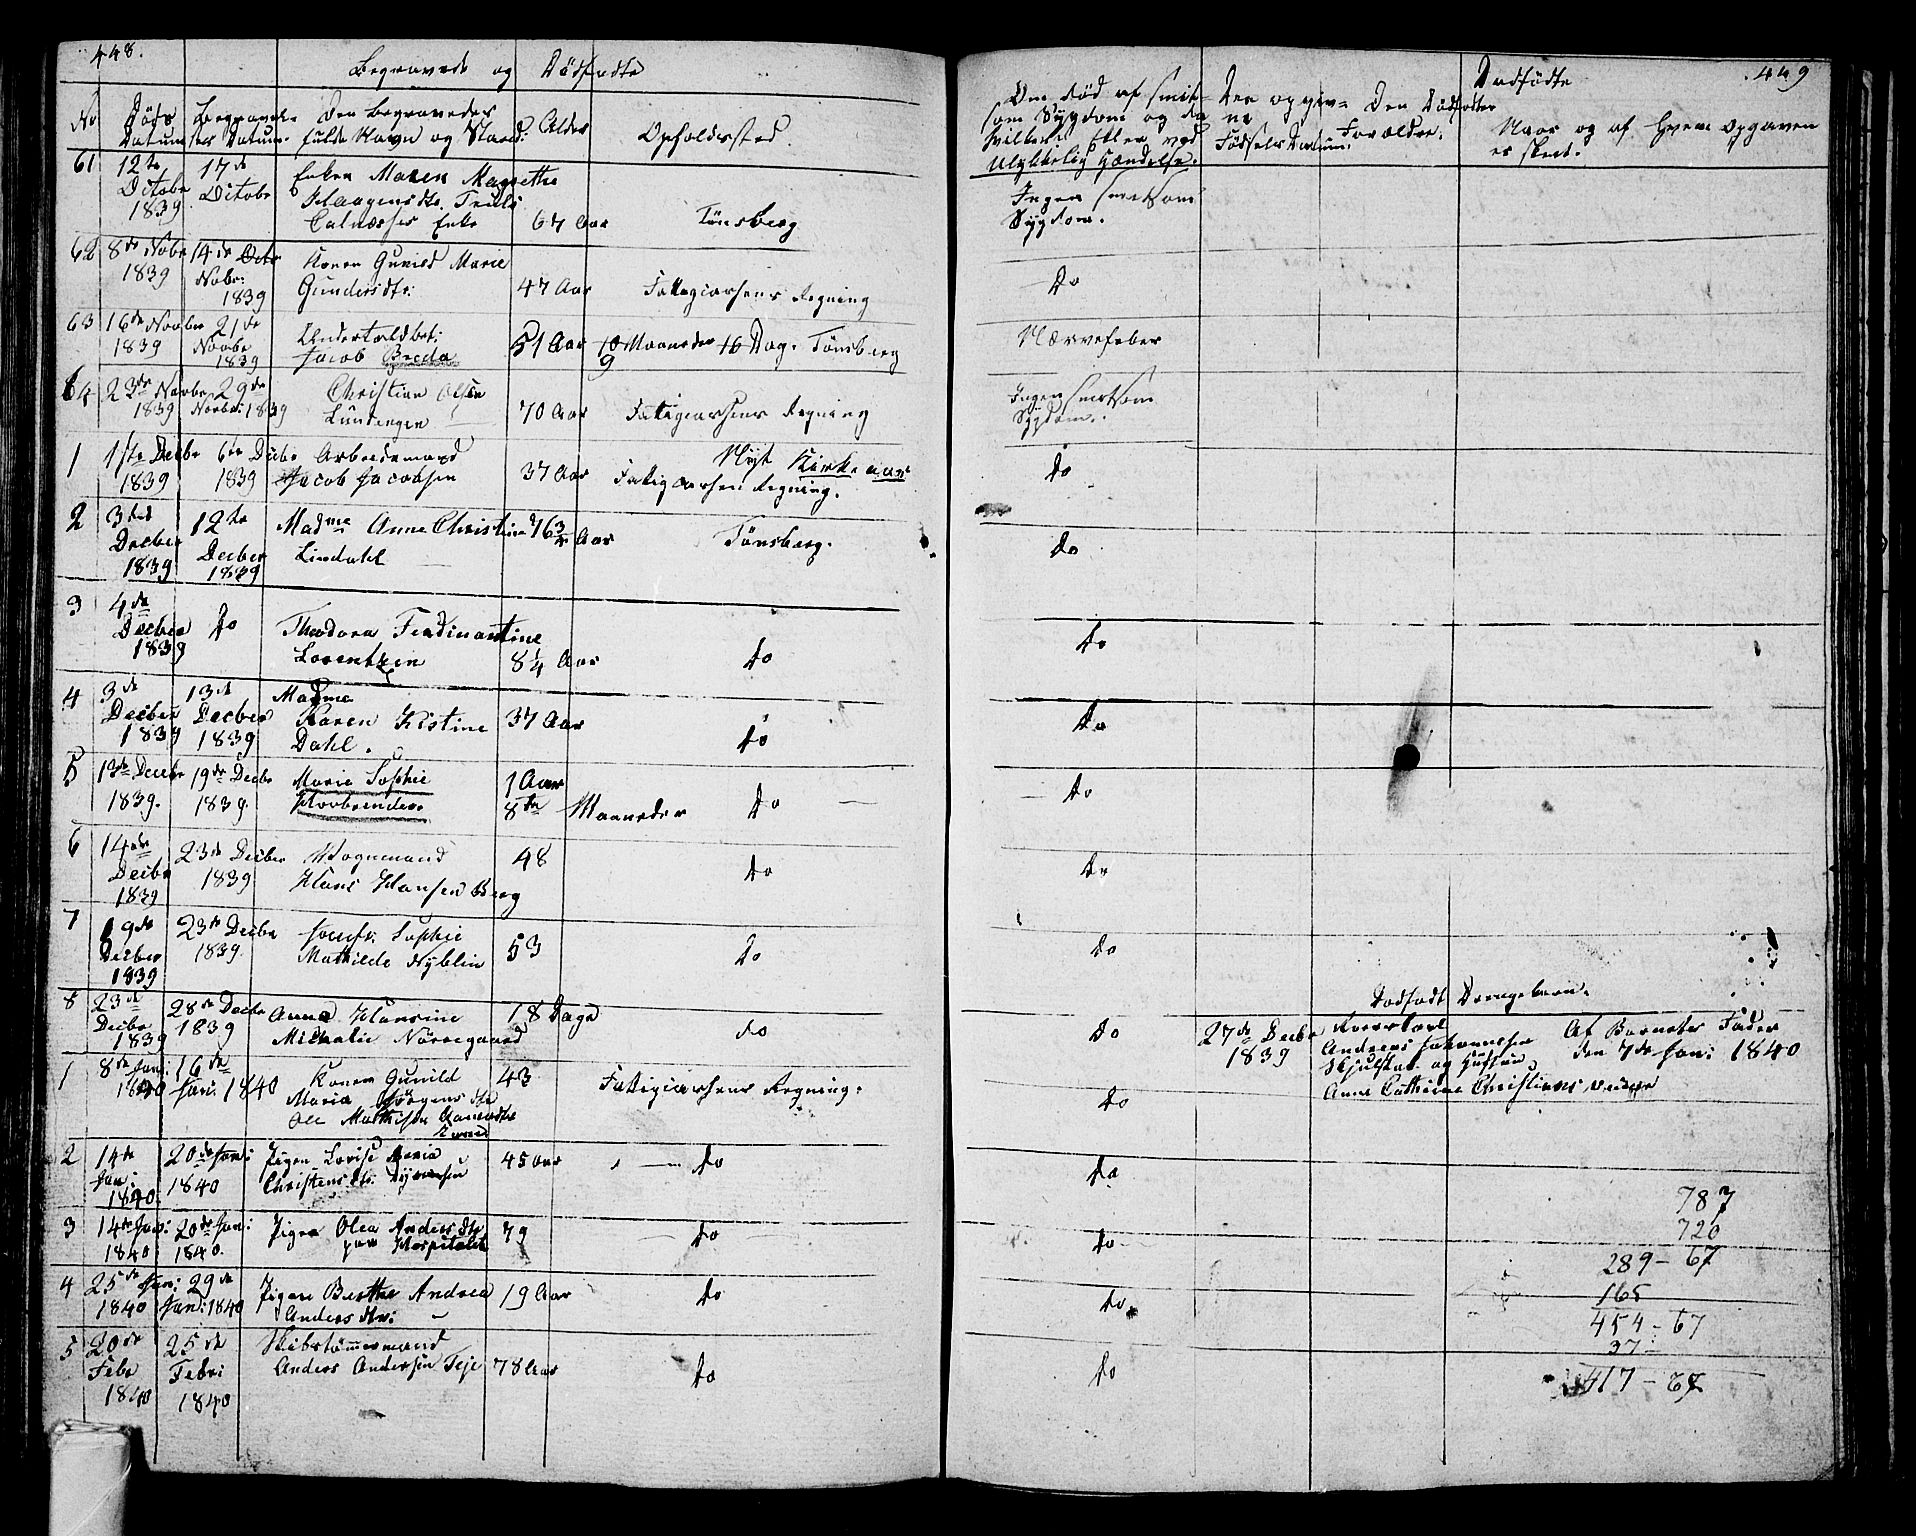 448.
Begravede og Dödfødte
No
Döds Datum
Begravelses Datum
Den Begravedes fulde Navn og Stand.
Alder
Opholdssted.
61
12te Octobr 1839
17de Octobr
Enken Maren Magrethe
Haagensdtr. Truls
Enke
67 Aar
Tönsberg
62
8de Novbr 1839
14de Octr Novbr: 1839
Konen Gunild Marie
Gundersdtr:
47 Aar
Fattigcassens Regning
63
16de Novbr 1839
21de Novbr 1839
Jacob Breda
51 Aar 10 Maaneder 16 Dag.
9
Tönsberg
64
23de Novbr 1839
29de Novbr: 1839
Christian Olsen
70 Aar
Fattigcassens Regning
1
1ste Decbr 1839
6te Decbr 1839
Arbeidsmand
Jacob Jacobsen
37 Aar
Nyt Kirke aar
Fattigcassens Regning.
2
3die Decber 1839
12te Decber 1839
Madme Anne Christine
Lindahl
Aar
Tönsberg.
3
4de Decber 1839
Do
Theodora Ferdinantine
Lorentzen
8 1/4 Aar
Do
4
3de Decber 1839
13de Decber 1839
Madme
Karen Kistine
Dahl.
37 Aar
Do
5
13de Decbr 1839.
19de Decbr 1839.
Marie Sophie
1 Aar
8te Maaneder
Do
6
14de Decbr 1839
23de Decber 1839
Vognmand
Hans Hansen Berg
48
Do
7
19de Decber 1839
23de Decbr 1839.
Jomfr. Sophie
Mathilde Nyblin
53
Do
8
23de Decbr 1839
28de Decbr 1839
Anna Hansine
Michalie Nörregaard
18 Dage
Do
1
8de Jan: 1840
16de Jan: 1840
Konen Gunild
Maria Jörgensdtr
Ole Mathisen
43
Fattigcassens Regning.
2
14de Jan: 1840.
20de Jan: 1840
Pigen Lovise Maria
Christensdtr.
45 Aar
Do
3
14de Jan: 1840
20de Jan: 1840.
Pigen Olea Andersdtr
paa Hospitalet
79
Do
4
25de Jan: 1840
29de Jan: 1840
Pigen Berthe Andrea
Andersdtr:
19 Aar
Do
5
20de Febr 1840
25de Febr: 1840
Skibstömmermand
Anders Andersen Teje
78 Aar
Do
449
Om död af smit-
som Sygdom og da
hvilken Eller ved
Ulykkelig Hændelse.
Den opgiv-
ne
Födsels Datum.
Den Dödfödtes
Forældre.
Dødfödte
Naar og af hvem Opgaven
er skeet.
Ingen smitsom
Sygdom.
Do
Nærvefeber
Ingen smitsom
Sygdom.
Do
Do
Do
Do
Do
Do
Do
Dodfödt Drengebarn.
Do
27de Decbr 1839
Andreas Johannesen
Skjulstad og Hustru
Anne Cathrine Christians
Af Barnets Fader
den 7de Jan: 1840
Do
Do
Do
Do
Do
787
720
289 - 67
165
454 - 67
37
417 - 67